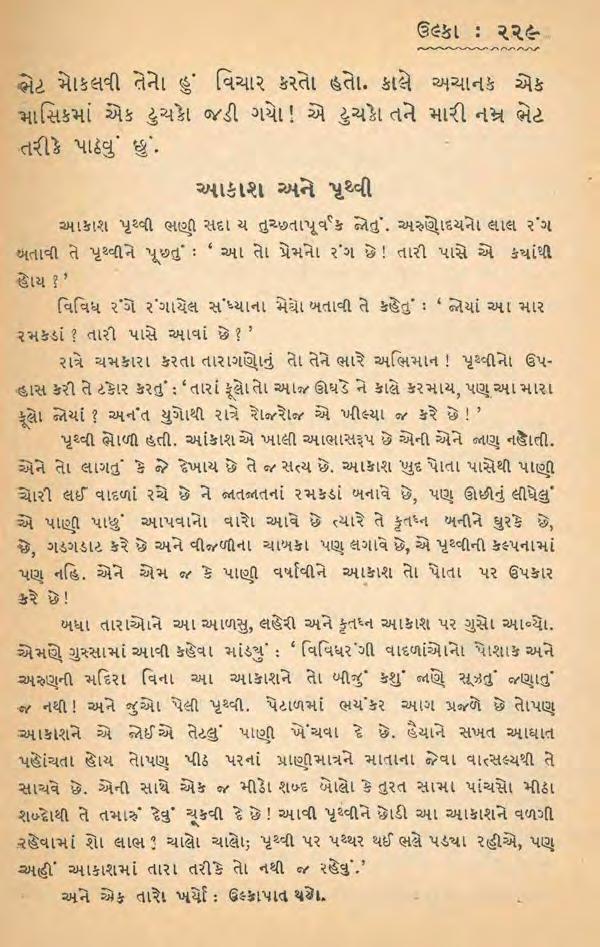 ઉલ્કા : ૨૨૯
ભેટ મોકલવી તેનો હું વિચાર કરતો હતો. કાલે અચાનક એક
માસિકમાં એક ટુચકો જડી ગયો! એ ટુચકો તને મારી નમ્ર ભેટ
તરીકે પાઠવું છું.
આકાશ અને પૃથ્વી
આકાશ પૃથ્વી ભણી સદા ય તુચ્છતાપૂર્વક જોતું. અરુણોદયનો લાલ રંગ
બતાવી તે પૃથ્વીને પૂછતું : ‘ આ તો પ્રેમનો રંગ છે! તારી પાસે એ ક્યાંથી
હોય ?’
વિવિધ રંગે રંગાયેલ સંધ્યાના મેઘો બતાવી તે કહેતું : ‘ જોયાં આ માર
રમકડાં ? તારી પાસે આવાં છે ?’
રાત્રે ચમકારા કરતા તારાગણોનું તો તેને ભારે અભિમાન ! પૃથ્વીનો ઉપ-
હાસ કરી તે ટકોર કરતું : ‘તારાં ફૂલો તો આજ ઊઘડે ને કાલે કરમાય, પણ આ મારા
ફૂલો જોયાં ? અનંત યુગોથી રાત્રે રોજરોજ એ ખીલ્યા જ કરે છે !’
પૃથ્વી ભોળી હતી. આંકાશ એ ખાલી આભાસરૂપ છે એની એને જાણ નહોતી.
એને તો લાગતું કે જે દેખાય છે તે જ સત્ય છે. આકાશ ખુદ પોતા પાસેથી પાણી
ચોરી લઈ વાદળાં રચે છે ને જાતજાતનાં રમકડાં બનાવે છે, પણ ઊછીનું લીધેલું
એ પાણી પાછું આપવાનો વારો આવે છે ત્યારે તે કૃતઘ્ન બનીને ઘુરકે છે,
છે, ગડગડાટ કરે છે અને વીજળીના ચાબકા પણ લગાવે છે, એ પૃથ્વીની કલ્પનામાં
પણ નહિ. એને એમ જ કે પાણી વર્ષાવીને આકાશ તો પોતા પર ઉપકાર
કરે છે !
બધા તારાઓને આ આળસુ, લહેરી અને કૃતઘ્ન આકાશ પર ગુસો આવ્યો.
એમણે ગુસ્સામાં આવી કહેવા માંડ્યું : ‘ વિવિધરંગી વાદળાંઓનો પોશાક અને
અરુણની મદિરા વિના આ આકાશને તો બીજું કશું જાણે સૂઝતું જણાતું
જ નથી ! અને જુઓ પેલી પૃથ્વી. પેટાળમાં ભયંકર આગ પ્રજળે છે તોપણ
આકાશને એ જોઈએ તેટલું પાણી ખેંચવા દે છે. હૈયાને સખત આઘાત
પહોંચતા હોય તોપણ પીઠ પરનાં પ્રાણીમાત્રને માતાના જેવા વાત્સલ્યથી તે
સાચવે છે. એની સાથે એક જ મીઠો શબ્દ બોલો કે તુરત સામા પાંચસો મીઠા
શબ્દોથી તે તમારું દેવું ચૂકવી દે છે ! આવી પૃથ્વીને છોડી આ આકાશને વળગી
રહેવામાં શો લાભ ? ચાલો ચાલો; પૃથ્વી પર પથ્થર થઈ ભલે પડ્યા રહીએ, પણ
અહીં આકાશમાં તારા તરીકે તો નથી જ રહેવું.’
અને એક તારો ખર્યો : ઉલ્કાપાત થયો.